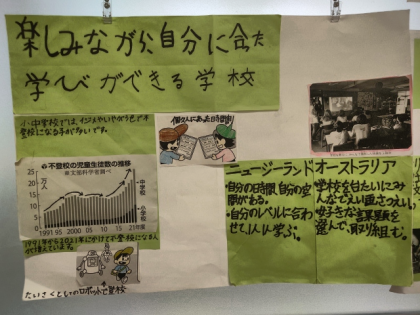 楽しみながら自分に合った
学びができる学校
小・中学校では、イジメやいやがらせで不
登校になる子がおいです。
不登校の児童生徒数の推移
※文部科学省調べ
25
万人
20
15
10
5
0
中学校
小学校
1991 95 2000 05 10 15 21年度
1991年から2021年にかけて不登校になる人
がで増えています。
たいさくとしてのロボットで登校
個人にあった時間割
ニュージーランド
・自分の時間、自分の空
間がある。
・自分のレベルに合わ
せて1人に学ぶ。
オーストラリア
学校を甘たいにみ
んなでえい画さつえい
・好きな課題を
選んで、取り組む。